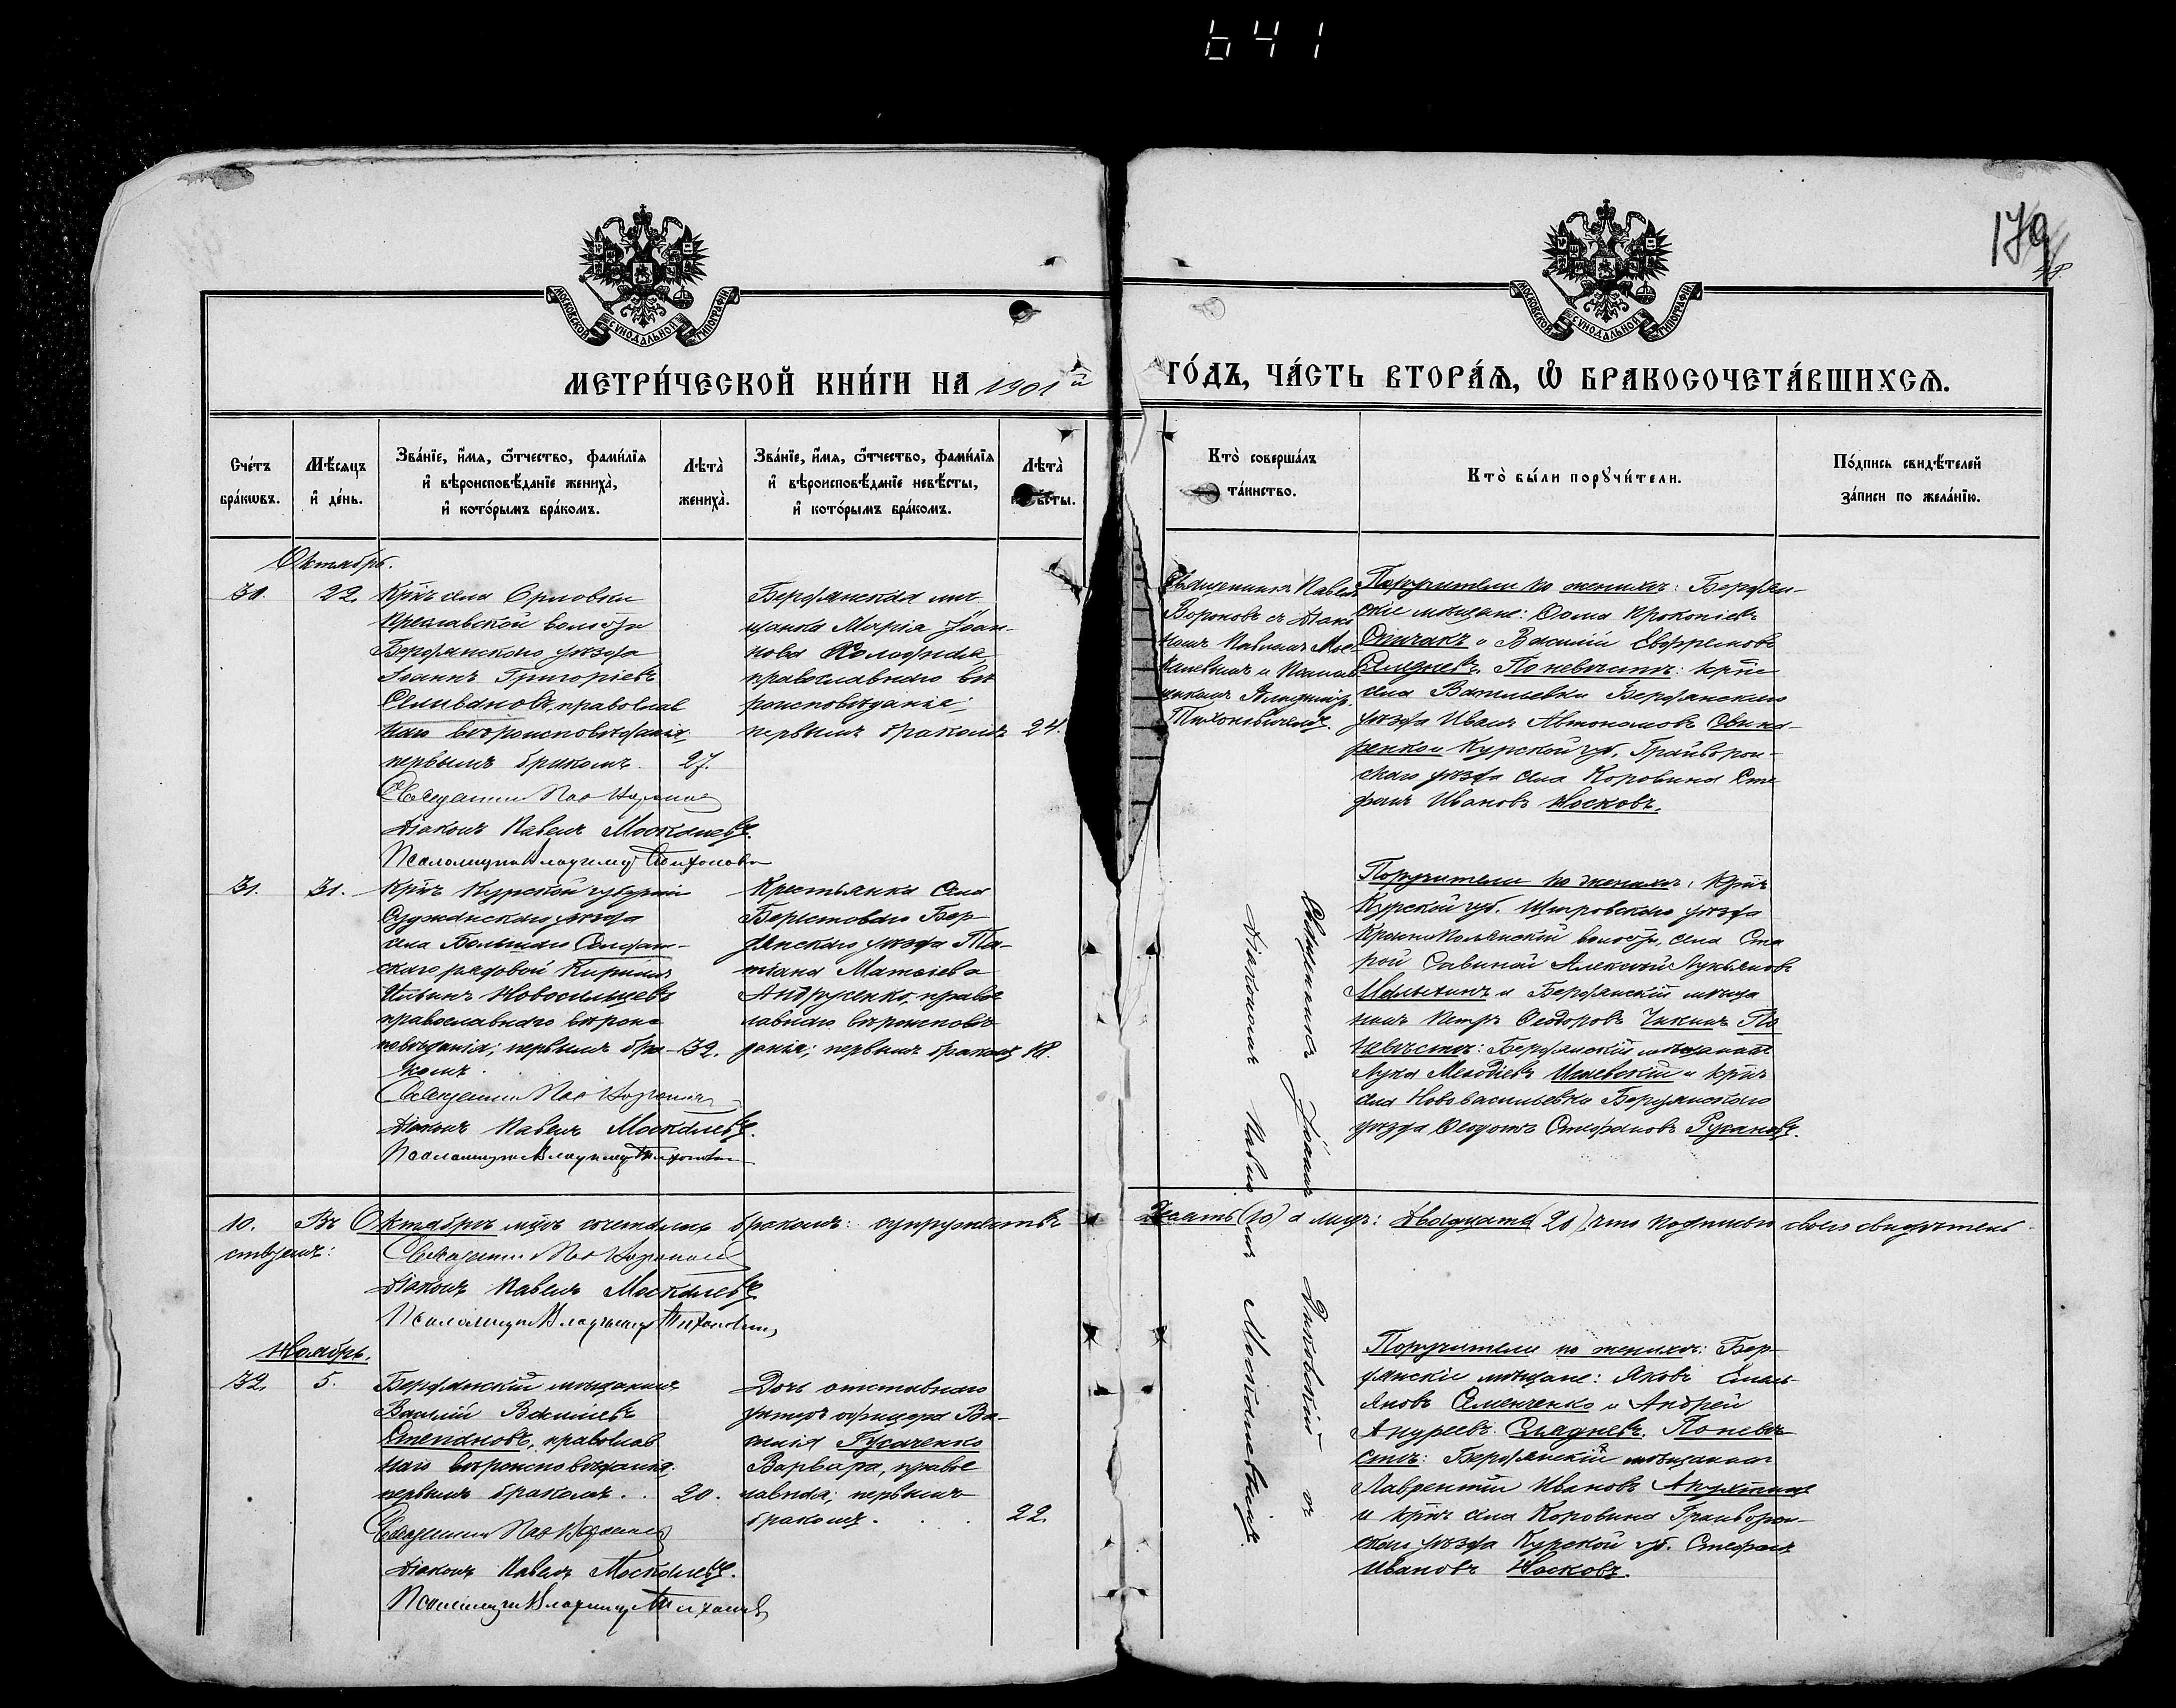 641
179
МОСКОВСКОЙ СѴНОДАЛЬНОЙ ТИПОГРАФІИ
МОСКОВСКОЙ СѴНОДАЛЬНОЙ ТИПОГРАФІИ
МЕТРИ́ЧЕСКОЙ КНИ́ГИ НА 1901й
ГО́ДЪ, ЧА́СТЬ ВТОРА́Ѧ, Ѽ БРАКОСОЧЕТА́ВШИХСѦ.
Сче́тъ бра́кѡвъ.
Мѣ́сяцъ и҆ де́нь.
Зва́нїе, и҆́мя, ѻ҆́тчество, фами́лїя
и҆ вѣроисповѣ́данїе жениха̀,
и҆ кото́рымъ бра́комъ.
Лѣта̀ жениха̀.
Зва́нїе, и҆́мя, ѻ҆́тчество, фами́лїя
и҆ вѣроисповѣ́данїе невѣ́сты,
и҆ кото́рымъ бра́комъ.
Лѣта̀
Кто̀ соверша́лъ
та́инство.
Кто̀ бы́ли порꙋчи́тели.
По́дпись свидѣ́телей
за́писи по жела́нїю.
Октябрь.
22.
Крнъ села Орловки
волости
Бердянскаго уѣзда
Іоаннъ Григоріевъ
Селивановъ, православ
наго вѣроисповѣданія,
первымъ бракомъ. 27.
Діаконъ Павелъ Москалевъ.
Бердянская мѣ
щанка Марія Іоан-
нова
православнаго вѣ
роисповѣданія;
первымъ бракомъ 24.
Священникъ Павелъ
Вороновъ съ Діако
номъ Павломъ Мос
калевымъ и Псалом
щикомъ Владимір.
Поручители по женихѣ: Бердян-
скіе мѣщане: Ѳома Прокопіевъ
и Василій Евфремовъ
По невѣстѣ: крне
села Васильевки Бердянскаго
уѣзда Иванъ Автономовъ Свина-
ренко и Курской губ. Грайворон-
скаго уѣзда села Коровина Сте
фанъ Ивановъ Носковъ.
31. 31.
Крнъ Курской губерніи
Суджанскаго уѣзда
села Большаго Солдат-
скаго рядовой Кириллъ
Ильинъ Новосильцевъ
православнаго вѣроис
повѣданія; первымъ бра- 32.
комъ.
Діаконъ Павелъ Москалевъ.
Крестьянка села
Берестоваго Бер-
дянскаго уѣзда Та-
тіана Матѳіева
Андрусенко, правос
лавнаго вѣроисповѣ-
данія; первымъ бракомъ 18.
Священникъ Іоаннъ съ
Діакономъ Павломъ Москалевымъ.
Поручители по женихѣ: Крнъ
Курской губ. Щигровскаго уѣзда
волости, села Ста
рой Савиной Алексѣй Лукьяновъ
и Бердянскій мѣща
нинъ Петръ Ѳеодоровъ По
невѣстѣ: Бердянскій мѣщанинъ
Лука Меѳодіевъ и крнъ
села Нововасильевки Бердянскаго
уѣзда Ѳедотъ Стефановъ Русановъ.
10. Въ Октябрѣ мцѣ сочеталось бракомъ: супружествъ Десять (10) а лицъ: Двадцать (20), что подписью своею свидѣтель-
ствуемъ:
Діаконъ Павелъ Москалевъ
Ноябрь.
32. 5.
Бердянскій мѣщанинъ
Василій Васильевъ
Степановъ, православ
наго вѣроисповѣданія
первымъ бракомъ. 20.
Діаконъ Павелъ Москалевъ.
Дочь отставнаго
унтеръ офицера Ва-
силія Гусаченко
Варвара, правос
лавная; первымъ
бракомъ. 22.
Поручители по женихѣ: Бер-
дянскіе мѣщане: Яковъ
Семенченко и Андрей
Андреевъ По невѣ
стѣ: Бердянскій мѣщанинъ
Лаврентій Ивановъ
и крнъ села Коровина Грайворон-
скаго уѣзда Курской губ. Стефанъ
Ивановъ Носковъ.